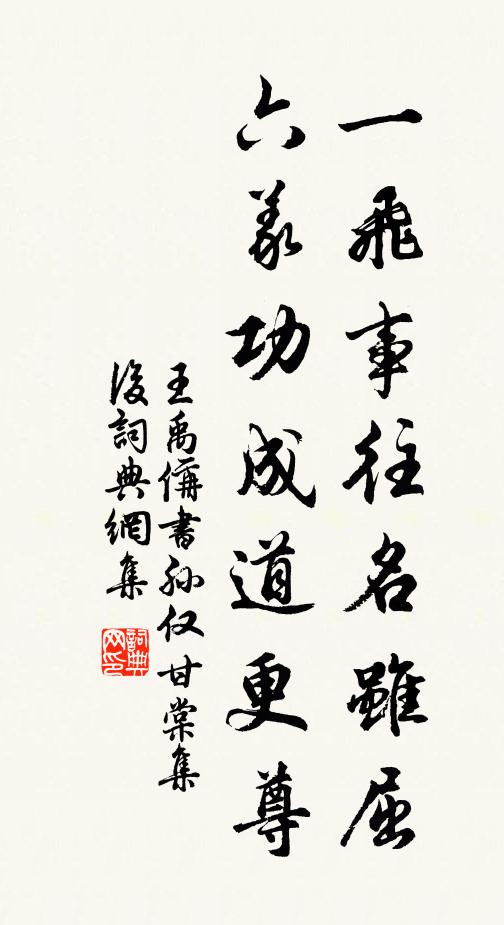 一飛事往名雖屈
六義功成道更尊
王禹偁書孫仅甘棠集
後詞典網集
詞典网印